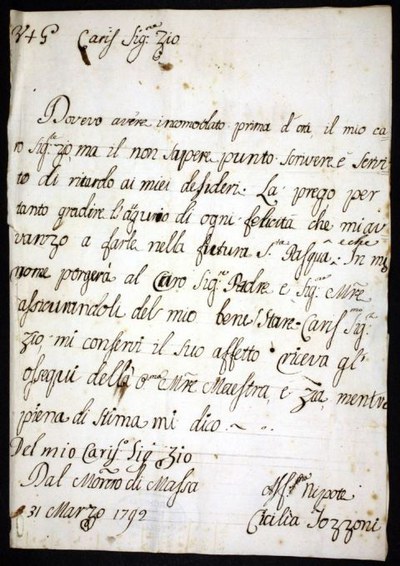 Caris.º Sig.re Zio
Dovevo avere incomodato prima d'ora, il mio ca
ro Sig.r Zio, ma il non sapere punto scrivere è servi
to di ritardo ai miei desideri. La prego per
tanto gradire l'augurio di ogni felicità che mi au
vanzo a farle nella futura S.ta Pasqua. In mio
nome porgerà al Caro Sig.re Padre e Sig.ra M̃re
assicurandoli del mio bene stare. Caris.º Sig.r
Zio mi conservi il suo affetto riceva gl'
ossequi della M̃re Maestra, e Zia, mentre
piena di stima mi dico
Del mio Caris.º Sig. Zio
Dal di Massa
31 Marzo 1792
Aff.ma Nipote
Cecilia Tozzoni